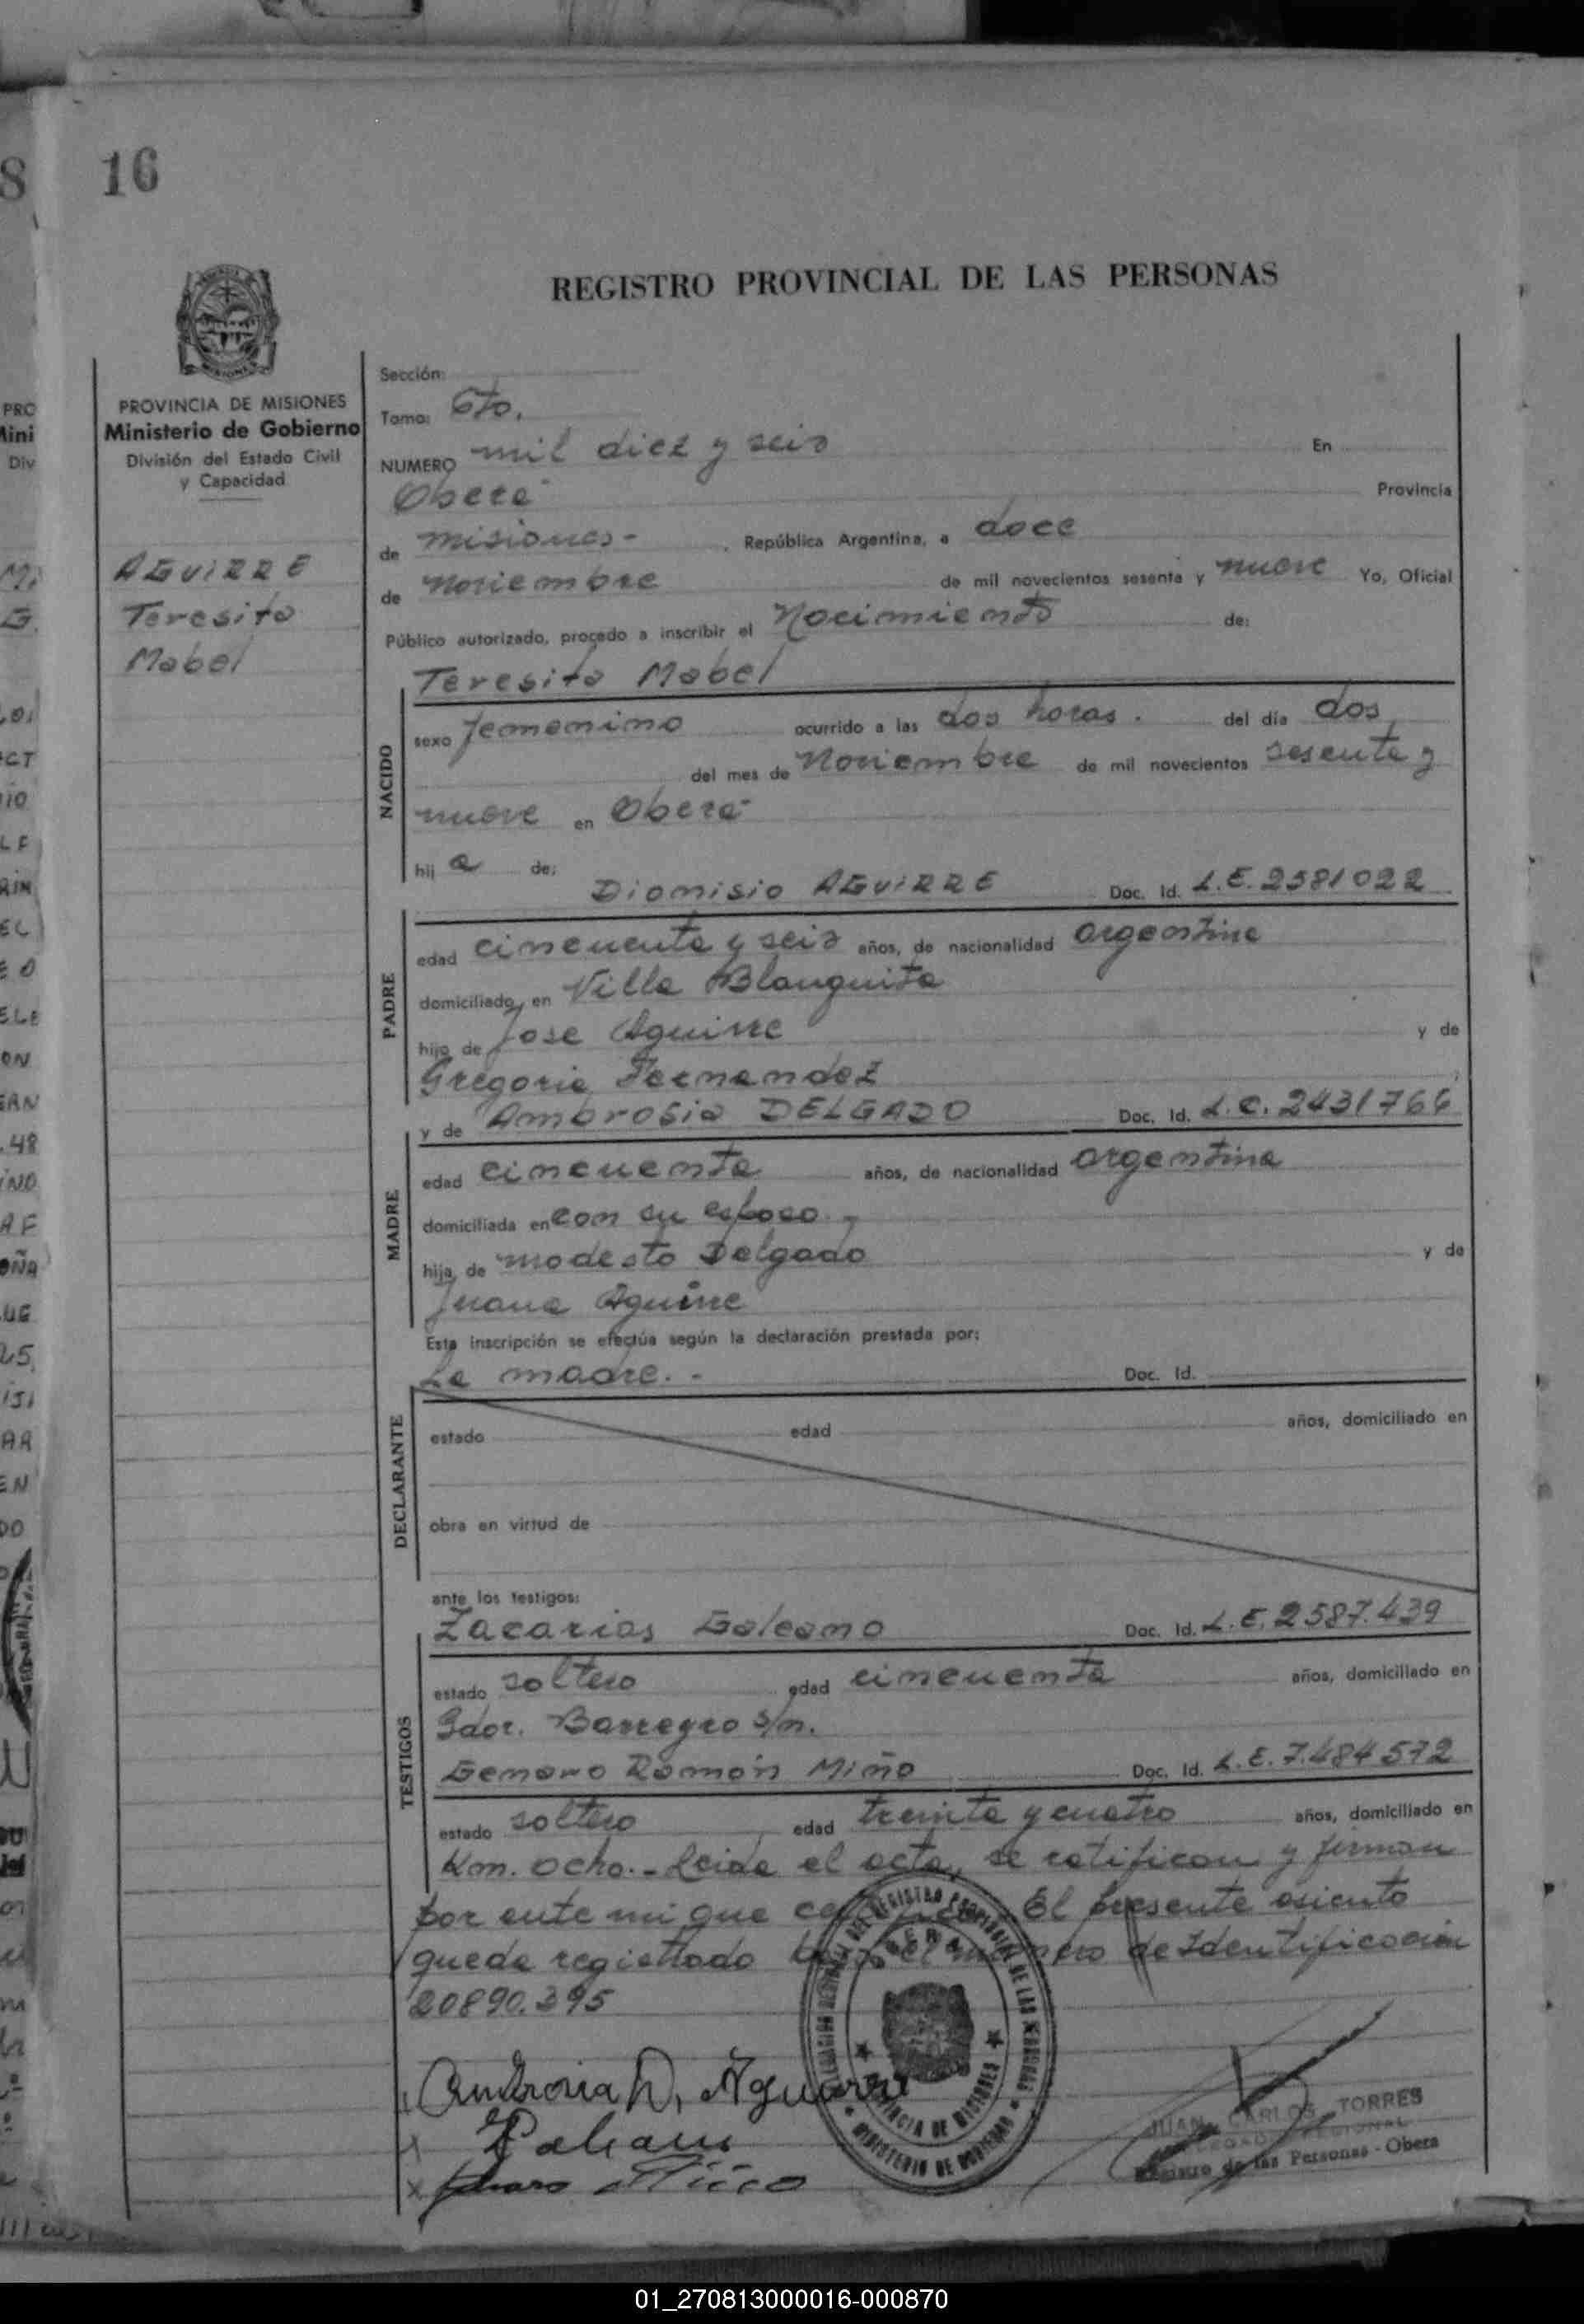 16
REGISTRO PROVINCIAL DE LAS PERSONAS
PROVINCIA DE MISIONES
Ministerio de Gobierno
División del Estado Civil
y Capacidad
AGUIRRE
Teresita
Mabel
Sección:
Tomo: 6to.
NUMERO mil diez y seis En
Obera
Provincia
de Misiones - , República Argentina, a doce
de Noviembre de mil novecientos sesenta y nueve Yo, Oficial
Público autorizado, procedo a inscribir el Nacimiento de:
Teresita Mabel
NACIDO
sexo femenino ocurrido a las dos horas. del día dos
del mes de Noviembre de mil novecientos sesenta y
nueve en Obera
hij a de:
Dionisio AGUIRRE Doc. Id. L.E. 2581022
PADRE
edad cincuenta y seis años, de nacionalidad argentina
domiciliado en Villa Blanquita
hijo de Jose Aguirre y de
Gregoria Fernandez
y de Ambrosia DELGADO Doc. Id. L.C. 2431766
MADRE
edad cincuenta años, de nacionalidad argentina
domiciliada en con su esposo -
hija de modesto Delgado y de
Juana Aguirre
Esta inscripción se efectúa según la declaración prestada por:
La madre. - Doc. Id.
DECLARANTE
estado edad años, domiciliado en
obra en virtud de
ante los testigos:
Zacarias Galeano Doc. Id. L.E. 2587.439
TESTIGOS
estado soltero edad cincuenta años, domiciliado en
Gdor. Barreyro s/n.
Genaro Ramón Miño Doc. Id. L.E. 7.484572
estado soltero edad treinta y cuatro años, domiciliado en
Km. ocho. - Leida el acta, se ratifican y firman
por ante mi que El presente asiento
queda registrado bajo el numero de Identificación
20890.395
Ambrosia D. Aguirre
JUAN CARLOS TORRES
DELEGADO REGIONAL
Registro de las Personas - Obera
PROVINCIA DE MISIONES
MINISTERIO DE GOBIERNO
01_270813000016-000870